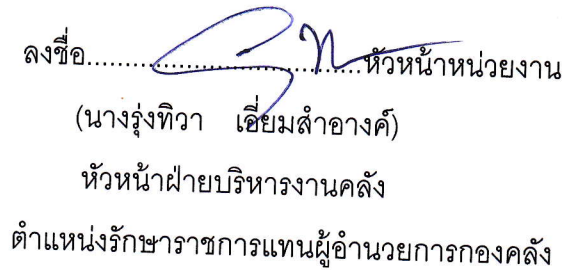 ลงชื่อ................................หัวหน้าหน่วยงาน
(นางรุ่งทิวา เอี่ยมสำอางค์)
หัวหน้าฝ่ายบริหารงานคลัง
ตำแหน่งรักษาราชการแทนผู้อำนวยการกองคลัง